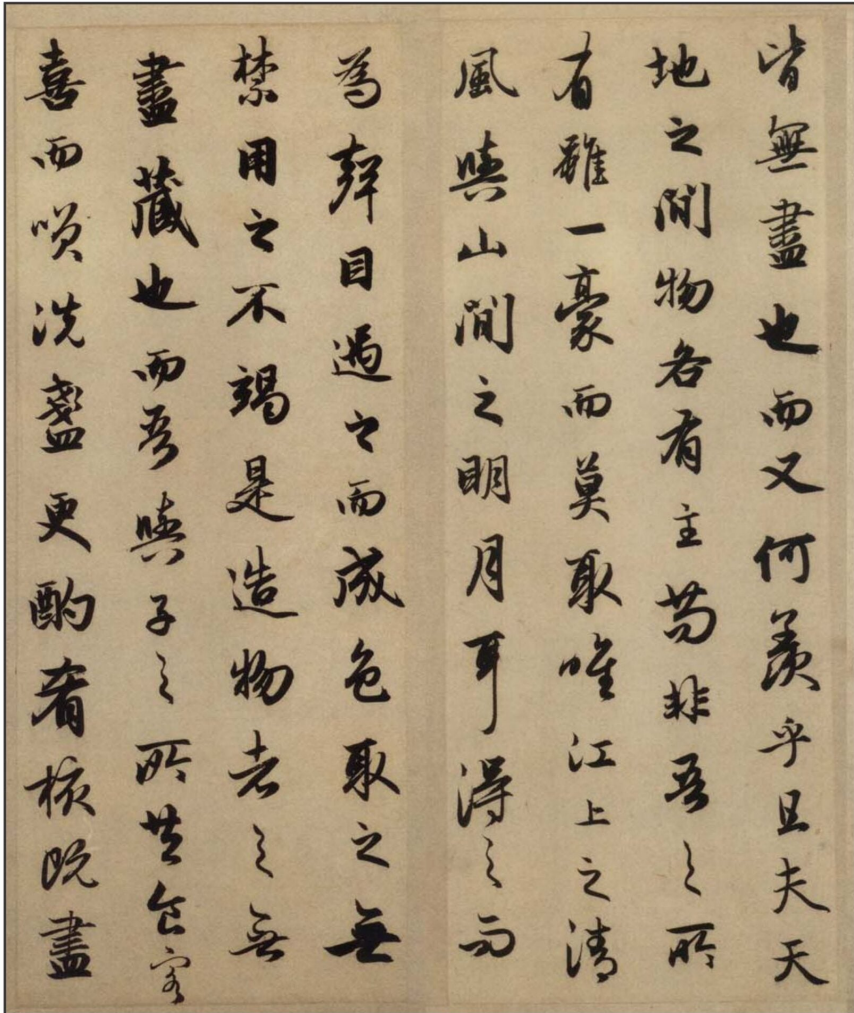 皆無盡也而又何羨乎且夫天
地之間物各有主茍非吾之所
有雖一豪而莫取唯江上之清
風與山間之明月耳得之而
為聲目遇之而成色取之無
禁用之不竭是造物者之無
盡藏也而吾與子之所共食客
喜而笑洗盞更酌肴核既盡